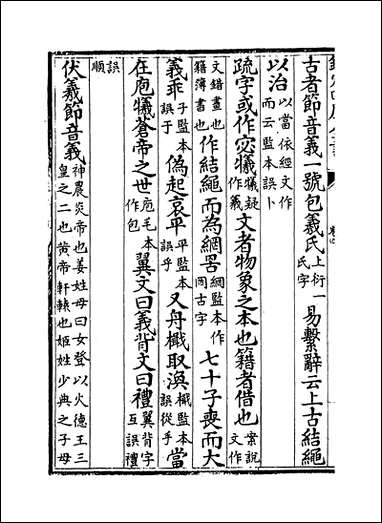 古者節音義一號包羲氏上衍一氏字易繫辭云上古結繩
以治以當依經文作而云監本誤卜
疏字或作宓犧犧疑作羲文者物象之本也籍者借也案說文作
文錯畫也籍簿書也作結繩而為網罟網監本作罔古字七十子喪而大
義乖子監本誤于偽起哀平平監本誤乎又舟檝取渙檝監本誤從手當
在庖犧蒼帝之世庖毛本作包翼文曰義背文曰禮翼背字互誤禮
誤順
伏羲節音義神農炎帝也姜姓母曰女登以火德王三皇之二也黄帝軒轅也姬姓少典之子母